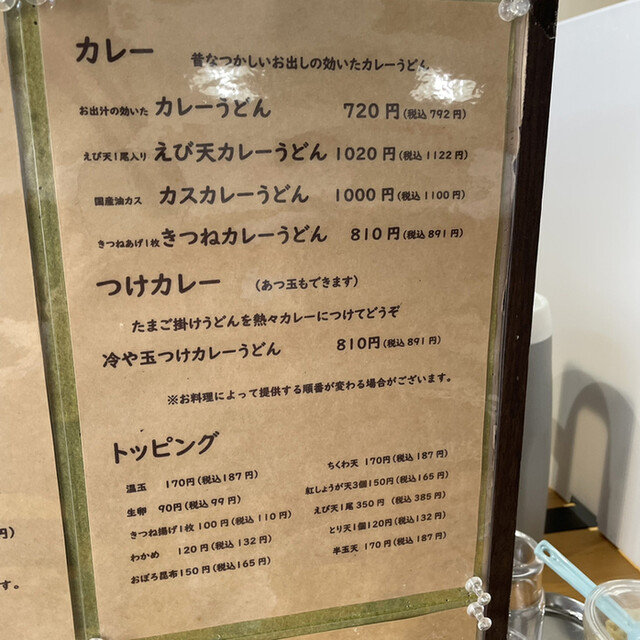 カレー
昔なつかしいお出しの効いたカレーうどん
お出汁の効いた カレーうどん 720円(税込792円)
えび天1尾入り えび天カレーうどん 1020円(税込1122円)
国産油カス カスカレーうどん 1000円(税込1100円)
きつねあげ1枚 きつねカレーうどん 810円(税込891円)
つけカレー (あつ玉もできます)
たまご掛けうどんを熱々カレーにつけてどうぞ
冷や玉つけカレーうどん 810円(税込891円)
※お料理によって提供する順番が変わる場合がございます。
トッピング
温玉 170円(税込187円)
生卵 90円(税込99円)
きつね揚げ1枚100円(税込110円)
わかめ 120円(税込132円)
おぼろ昆布150円(税込165円)
ちくわ天 170円(税込187円)
紅しょうが天3個150円(税込165円)
えび天1尾350円(税込385円)
とり天1個120円(税込132円)
半玉天 170円(税込187円)
円)
す。